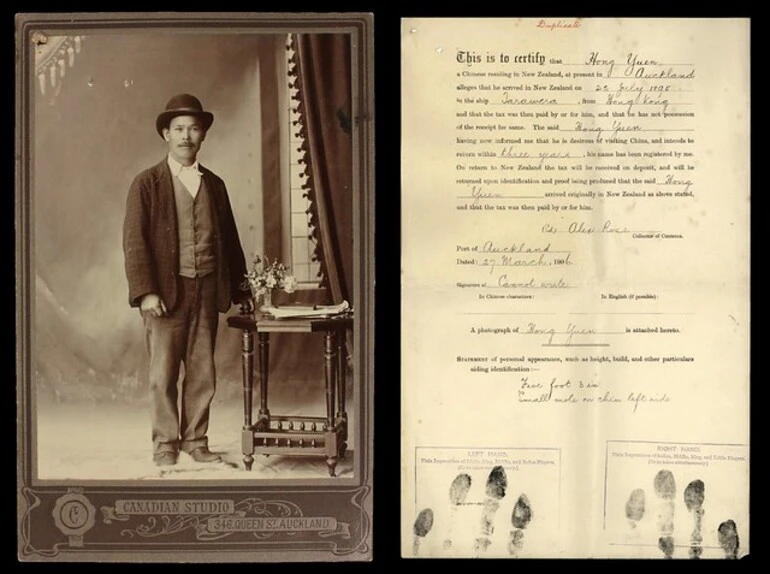 CANADIAN STUDIO
346 QUEEN ST. AUCKLAND
Duplicate
This is to certify that Hong Yuen
a Chinese residing in New Zealand, at present in Auckland
alleges that he arrived in New Zealand on July
in the ship Tarawera, from Hong Kong
and that the tax was then paid by or for him, and that he has not possession
of the receipt for same. The said Hong Yuen
having now informed me that he is desirous of visiting China, and intends to
return within three years, his name has been registered by me.
On return to New Zealand the tax will be received on deposit, and will be
returned upon identification and proof being produced that the said Hong
Yuen arrived originally in New Zealand as above stated,
and that the tax was then paid by or for him.
Alex Rose
Collector of Customs.
Port of Auckland
Dated: 27 March, 1906
Signature of Cannot write
In Chinese characters: In English (if possible):
A photograph of Hong Yuen is attached hereto.
STATEMENT of personal appearance, such as height, build, and other particulars
aiding identification:—
Five foot 3 in
Small mole on chin left side
LEFT HAND.
Plain Impressions of Index, Middle, Ring, and Little Fingers.
RIGHT HAND.
Plain Impressions of Index, Middle, Ring, and Little Fingers.